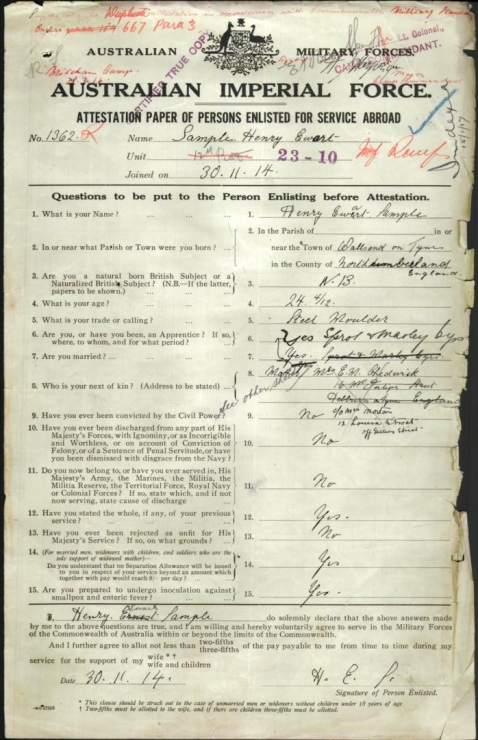 667 Para 3
CERTIFIED TRUE COPY
Lt. Colonel,
CAMP COMMANDANT.
AUSTRALIAN MILITARY FORCES.
Mitcham Camp
AUSTRALIAN IMPERIAL FORCE.
ATTESTATION PAPER OF PERSONS ENLISTED FOR SERVICE ABROAD
No. 1362 Name Sample Henry Ewart
Unit 23-10
Joined on 30.11.14.
Questions to be put to the Person Enlisting before Attestation.
1. What is your Name? ... 1. Henry Ewart Sample
2. In or near what Parish or Town were you born? ... 2. In the Parish of in or
near the Town of Wallsend on Tyne
in the County of Northumberland
England
3. Are you a natural born British Subject or a
Naturalized British Subject? (N.B.—If the latter,
papers to be shown.) 3. N.B.
4. What is your age? ... 4. 24 4/12
5. What is your trade or calling? ... 5. Steel Moulder
6. Are you, or have you been, an Apprentice? If so,
where, to whom, and for what period? ... 6. Yes Sprot & Marley 6 yrs
7. Are you married? ... 7. Yes.
8. Who is your next of kin? (Address to be stated) ... 8. Mother Mrs E.W.
England
see other sheet
9. Have you ever been convicted by the Civil Power? 9. No
10. Have you ever been discharged from any part of His
Majesty's Forces, with Ignominy, or as Incorrigible
and Worthless, or on account of Conviction of
Felony, or of a Sentence of Penal Servitude, or have
you been dismissed with disgrace from the Navy? 10. No
11. Do you now belong to, or have you ever served in, His
Majesty's Army, the Marines, the Militia, the
Militia Reserve, the Territorial Force, Royal Navy
or Colonial Forces? If so, state which, and if not
now serving, state cause of discharge 11. No
12. Have you stated the whole, if any, of your previous
service? ... 12. Yes.
13. Have you ever been rejected as unfit for His
Majesty's Service? If so, on what grounds? 13. No
14. (For married men, widowers with children, and soldiers who are the
sole support of widowed mother—
Do you understand that no Separation Allowance will be issued
to you in respect of your service beyond an amount which
together with pay would reach 8/- per day? ... 14. Yes
15. Are you prepared to undergo inoculation against
smallpox and enteric fever? 15. Yes.
I, Henry Ewart Sample do solemnly declare that the above answers made
by me to the above questions are true, and I am willing and hereby voluntarily agree to serve in the Military Forces
of the Commonwealth of Australia within or beyond the limits of the Commonwealth.
And I further agree to allot not less than two-fifths three-fifths of the pay payable to me from time to time during my
service for the support of my wife *† wife and children
Date 30.11.14. H. E. S.
Signature of Person Enlisted.
* This clause should be struck out in the case of unmarried men or widowers without children under 18 years of age
† Two-fifths must be allotted to the wife, and if there are children three-fifths must be allotted.